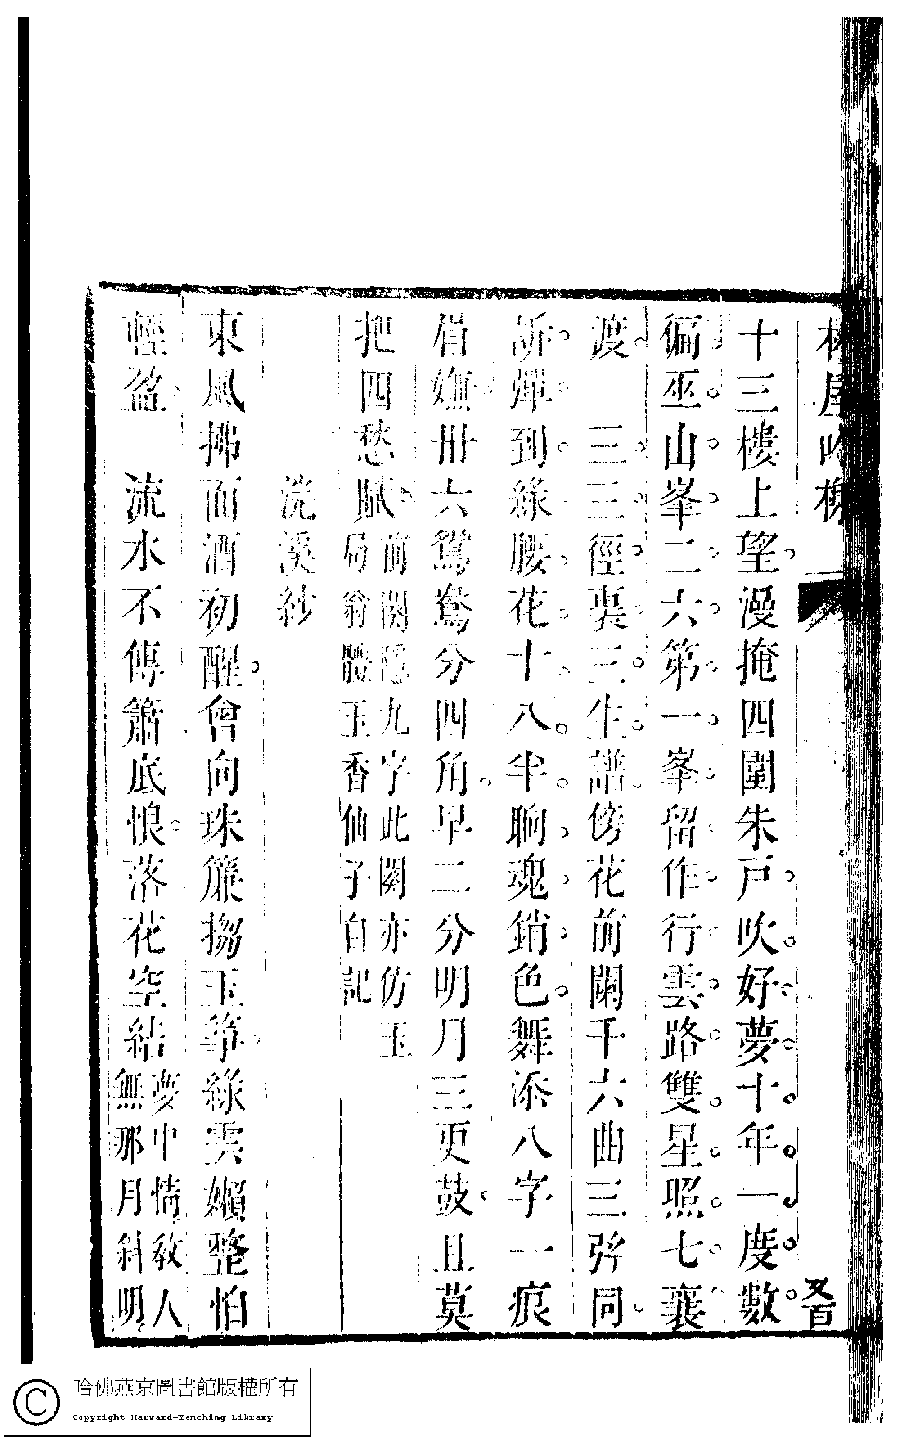 十三樓上望漫掩四圍朱戶吹好夢十年一度數
偏巫山峯二六第一峯留作行雲路雙星照七襄
渡　三三徑裏三生譜傍花前闌千六曲三弮同
訴彈到綠腰花十八半晌魂銷色舞添八字一痕
眉嫵卌六鴛鴦分四角早二分明月三更鼓且莫
把四愁賦前闋隱九字此闋亦仿玉
局翁體玉香仙子自記
浣溪紗
東風拂面酒初醒曾向珠簾搊玉箏綠雲嬾整怕
輕盈　流水不傳簫底恨落花空結夢中情教人
無那月斜明
又百
哈佛燕京圖書館版權所有
Copyright Harvard-Yenching Library